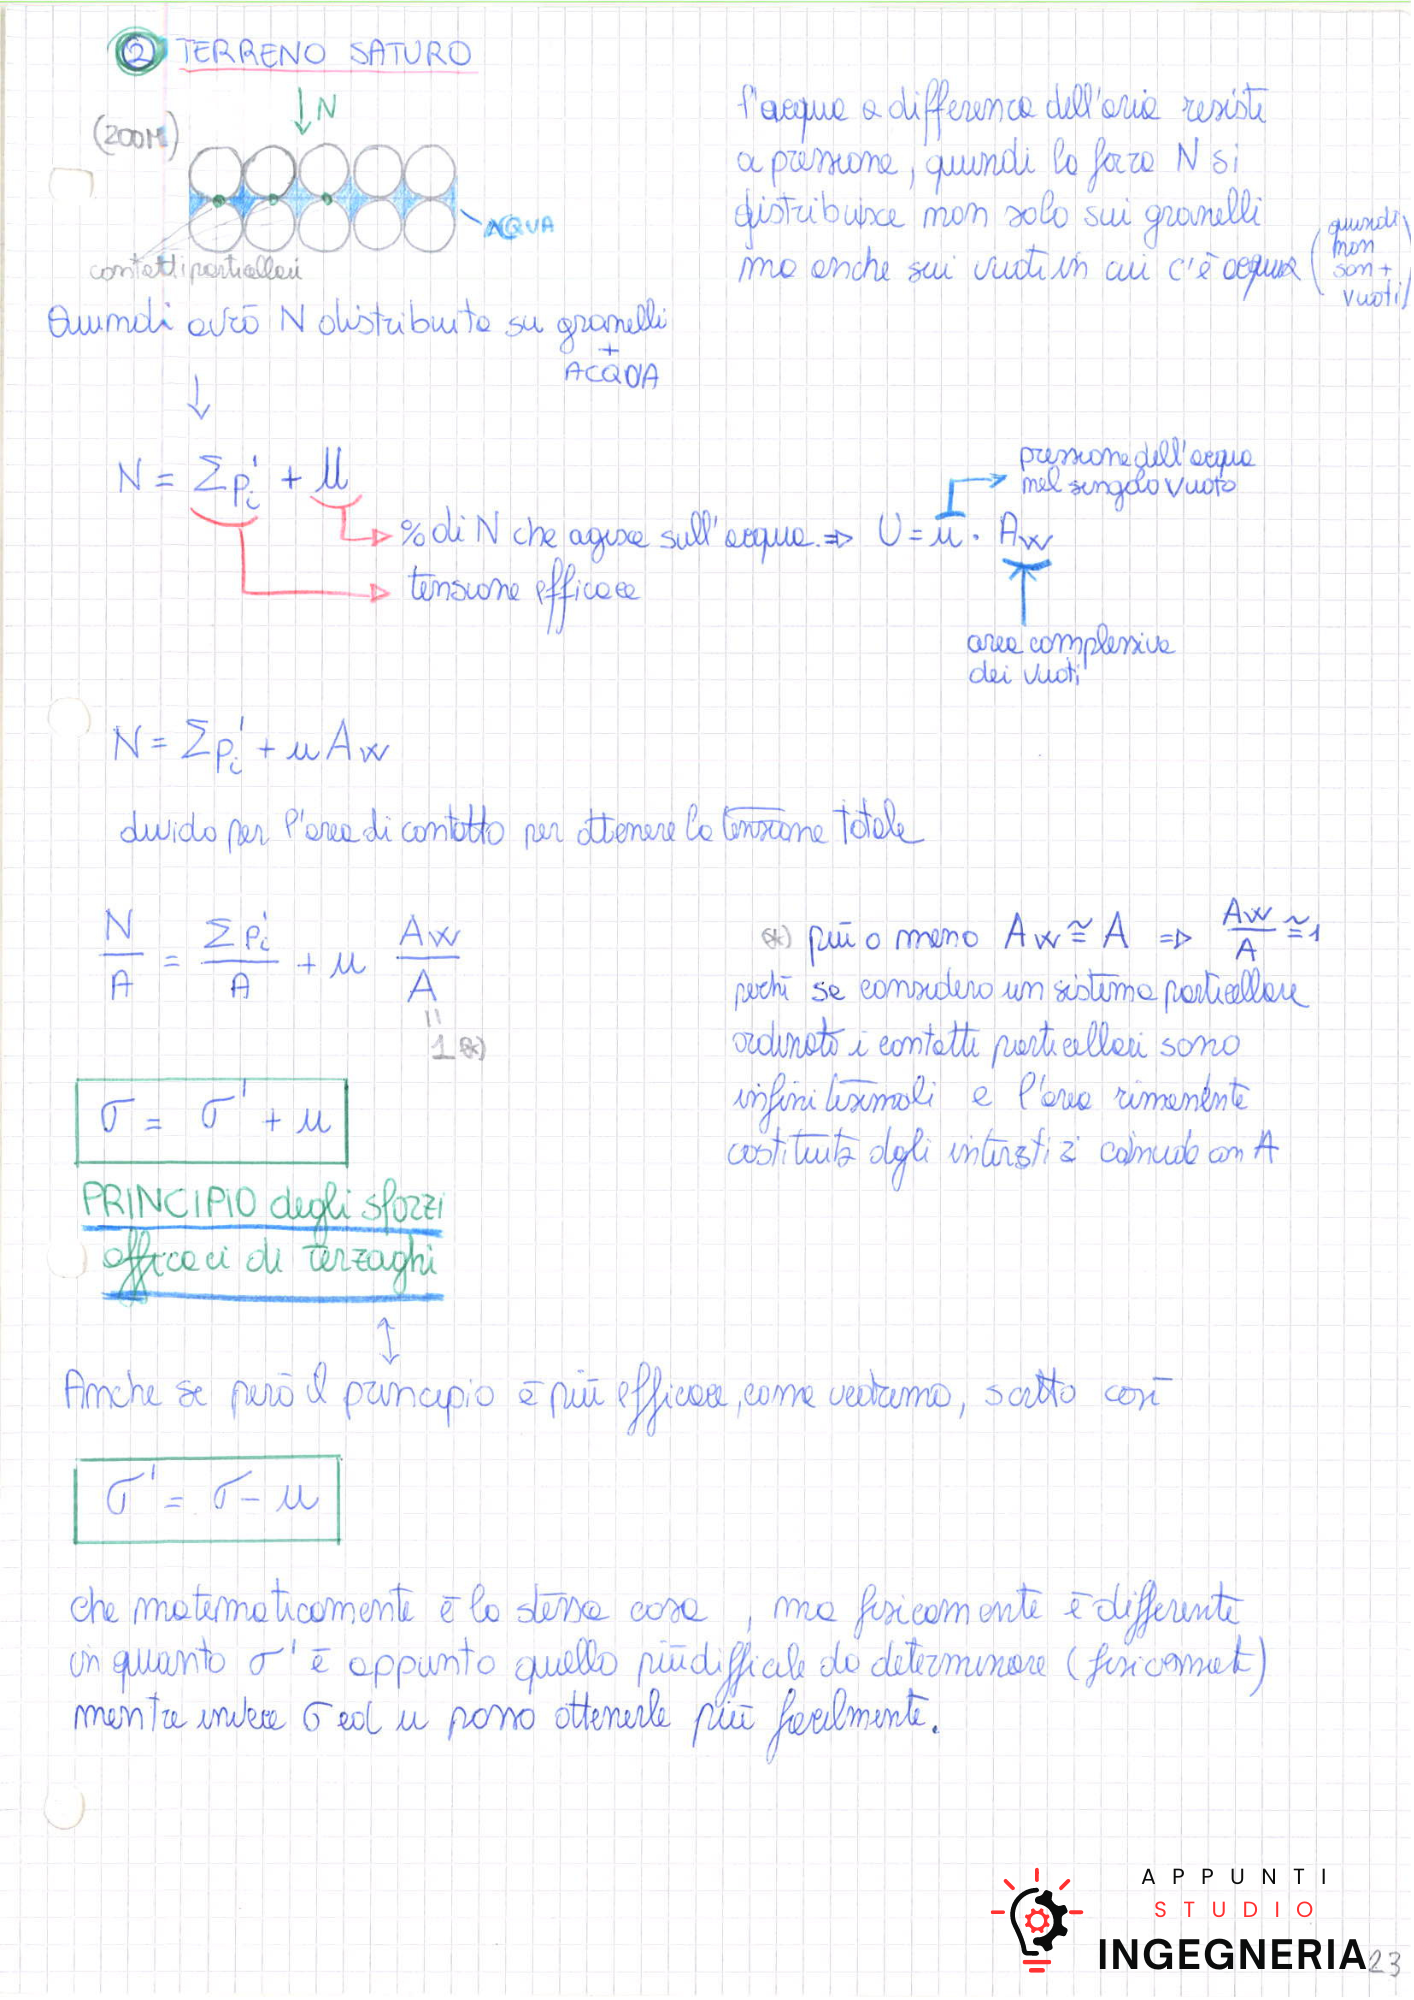 2 TERRENO SATURO
↓ N
(ZOOM)
ACQUA
contatti particellari
l'acqua a differenza dell'aria resiste
a pressione, quindi la forza N si
distribuisce non solo sui granelli
ma anche sui vuoti in cui c'è acqua (quindi
non
son +
vuoti)
Quindi avrò N distribuita su granelli
+
ACQUA
↓
N = Σpi' + U
% di N che agisce sull'acqua. ⇒ U = u · Aw
pressione dell'acqua
nel singolo vuoto
tensione efficace
area complessiva
dei vuoti
N = Σpi' + u Aw
divido per l'area di contatto per ottenere la tensione totale
N/A = Σpi'/A + u Aw/A
=
1 *)
*) più o meno Aw ≅ A ⇒ Aw/A ≅ 1
perché se considero un sistema particellare
ordinato i contatti particellari sono
infinitesimali e l'area rimanente
costituita dagli interstizi coincide con A
σ = σ' + u
PRINCIPIO degli sforzi
efficaci di Terzaghi
↕
Anche se però il principio è più efficace, come vedremo, scritto così
σ' = σ - u
che matematicamente è la stessa cosa, ma fisicamente è differente
in quanto σ' è appunto quello più difficile da determinare (fisicamente)
mentre invece σ ed u posso ottenerle più facilmente.
APPUNTI
STUDIO
INGEGNERIA
23